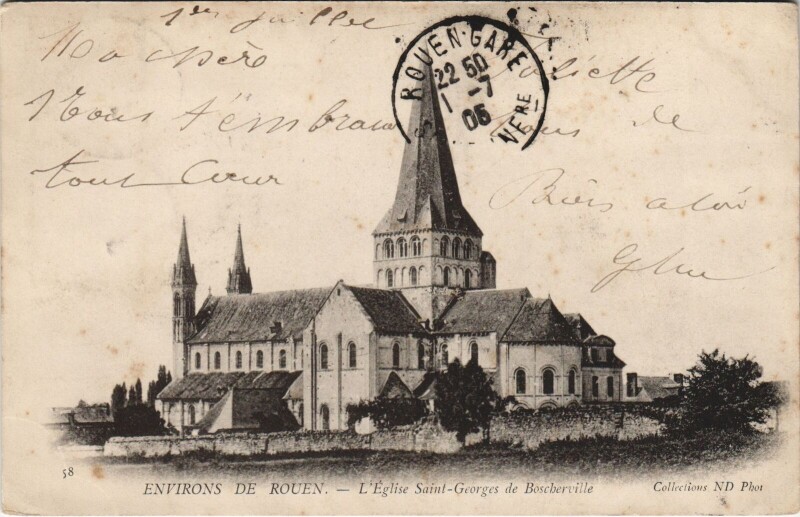 1er Juillet
Ma chère Juliette
Nous t'embrassons de
tout Cœur Bien à toi
ROUEN-GARE
22 50
1 -7
05
58
ENVIRONS DE ROUEN. — L'Église Saint-Georges de Boscherville
Collections ND Phot